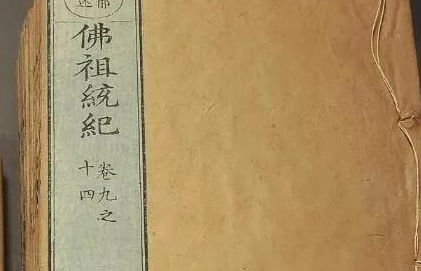 佛祖統紀
卷九之
十四